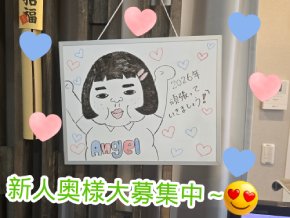 招福
2026年
頑張って
いきましょう!
Angel
新人奥様大募集中～